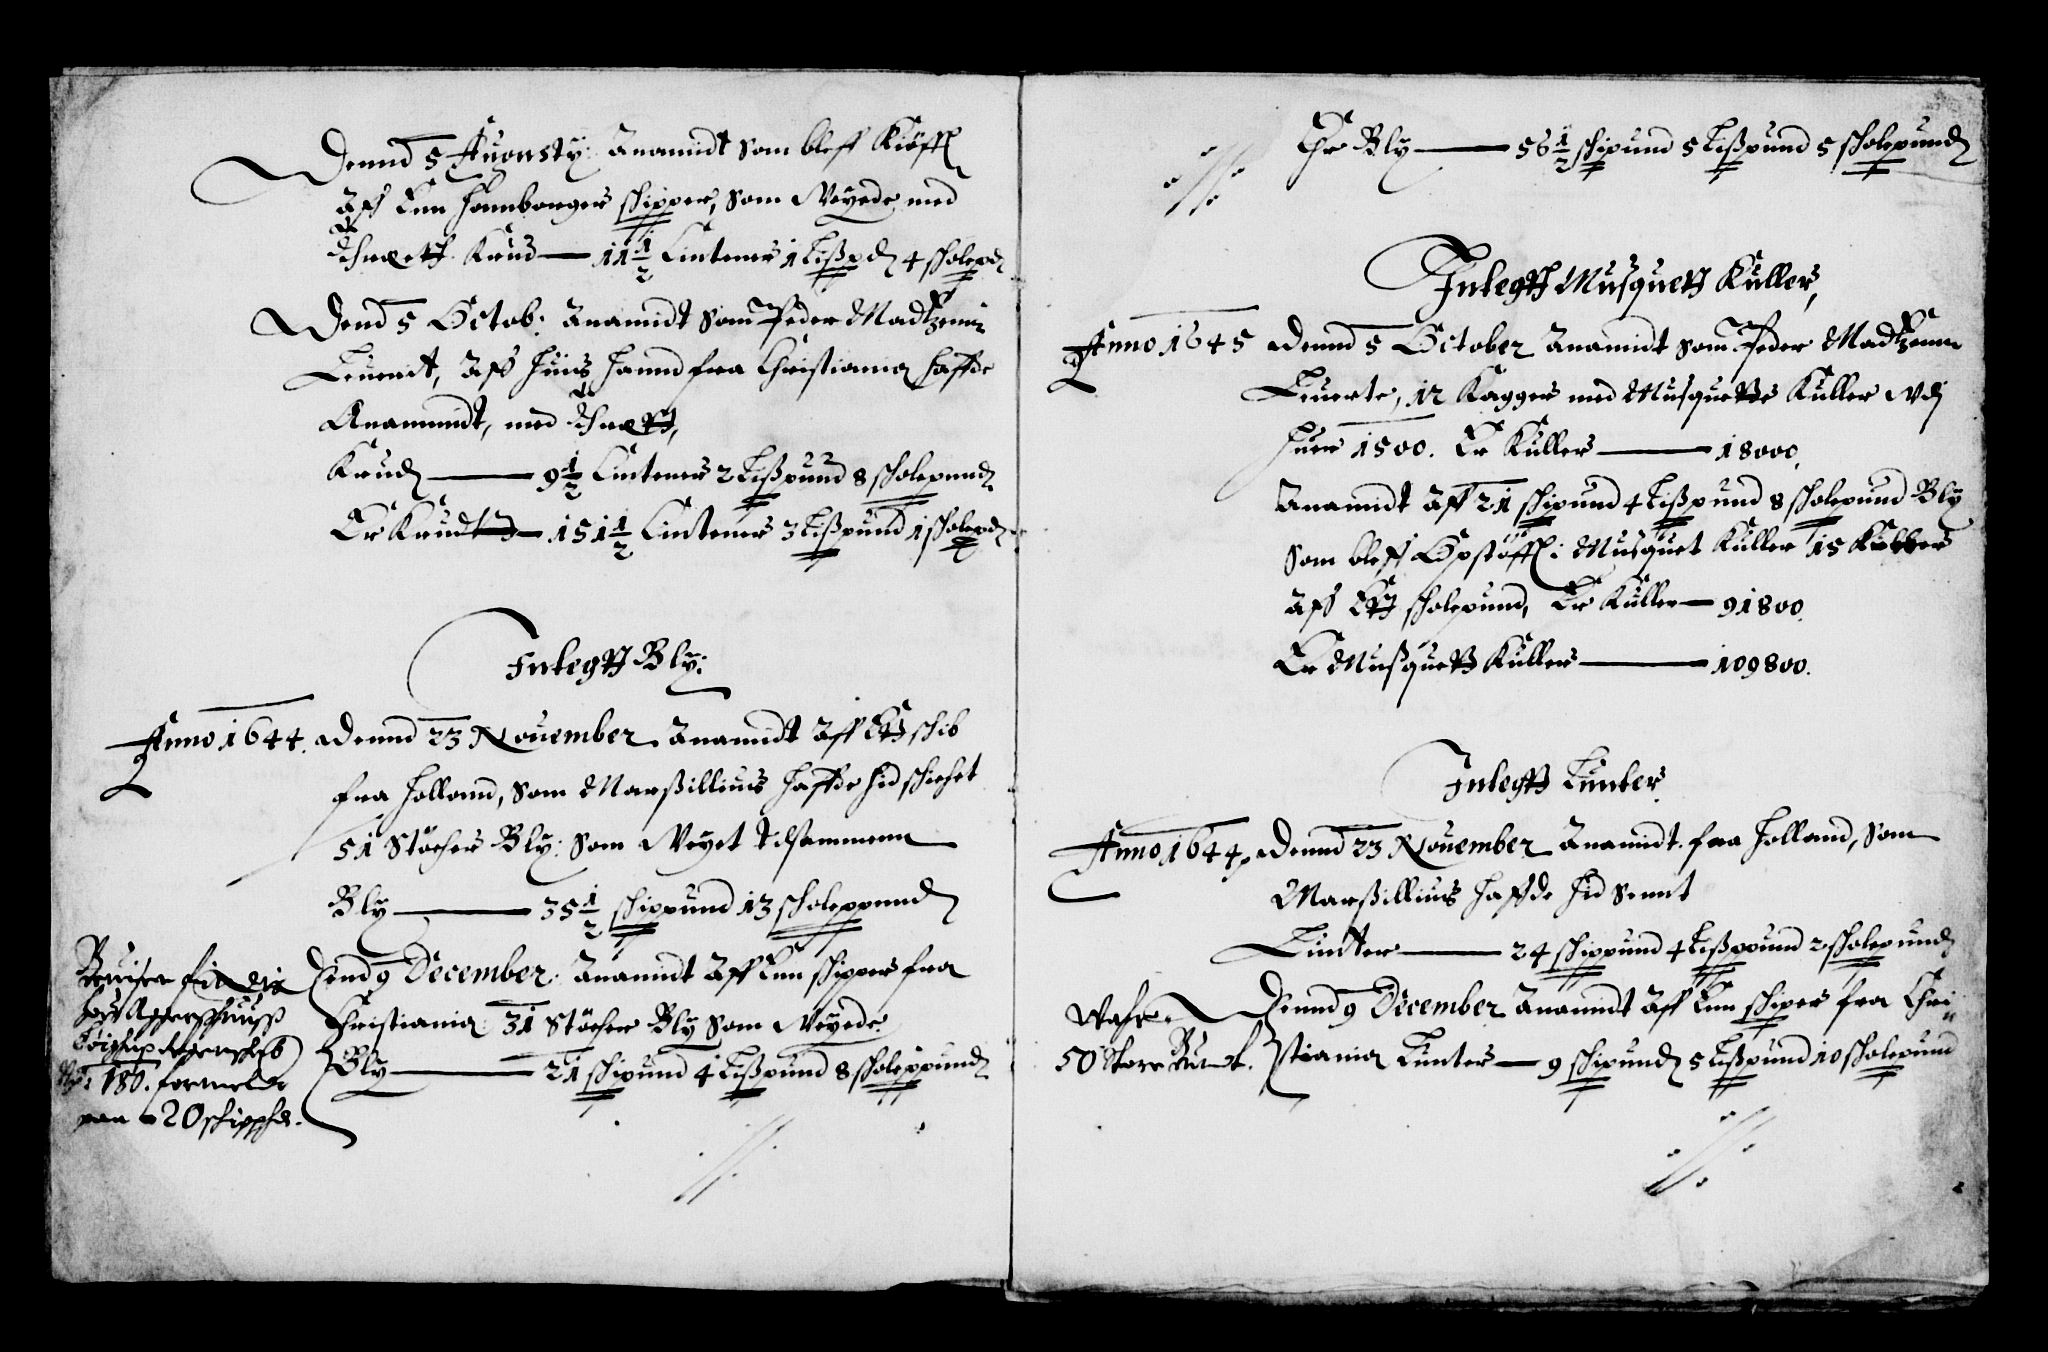 Dennd 5 Augusty: Anamidt som bleff Kiöfft
Aff Enn Hamborger schipper, som Veyede med
Thræett Krud — 11 1/2 Cintener 1 Lißpd 4 scholepd
Dend 5 Octob: Anamidt som Peder Madtzenn
Leuerdt, Aff Huis hannd fra Christiania haffde
Anammidt, med Thræett,
Krud — 9 1/2 Cintener 2 Lißpund 8 scholepund
Er Krudt — 151 1/2 Cintener 3 Lißpund 1 scholepd
Inlegtt Bly:
Anno 1644. Dennd 23 November Anamidt Aff Ett schib
fra Holland, som Marßillius haffde hid schichet
51 Stöcher Bly: som Veyet tilsammenn
Bly — 35 1/2 schippund 13 scholeppund
Dend 9 December: Anamidt Aff Enn schipper fra
Christiania 31 Stöcher Bly som Veyede
Bly — 21 schipund 4 Lißpund 8 scholeppund
Aggershuuß
180.
paa 20 schippd.
Er Bly — 56 1/2 schipund 5 Lißpund 5 scholepund
Inlegtt Musquett Kuller,
Anno 1645 Dennd 5 October Anamidt som Peder Madtzenn
Leuerte, 12 Kagger med Musquetter Kuller udj
huer 1500. Er Kuller — 18000.
Anamidt Aff 21 schipund 4 Lißpund 8 scholepund Bly
som bleff Opstöfft i Musquet Kuller 15 Kuller
Aff Ett scholepund, Er Kuller — 91800.
Er Mußquett Kuller — 109800.
Inlegtt Lunter
Anno 1644, Dennd 23 November Anamidt fra Holland, som
Marßillius haffde hid sennt
Lunter — 24 schippund 4 Lißppund 2 scholepund
Dennd 9 December Anamidt Aff Enn schiper fra Chri=
stiania Lunter — 9 schipund 5 Lißpund 10 scholepund
50 store